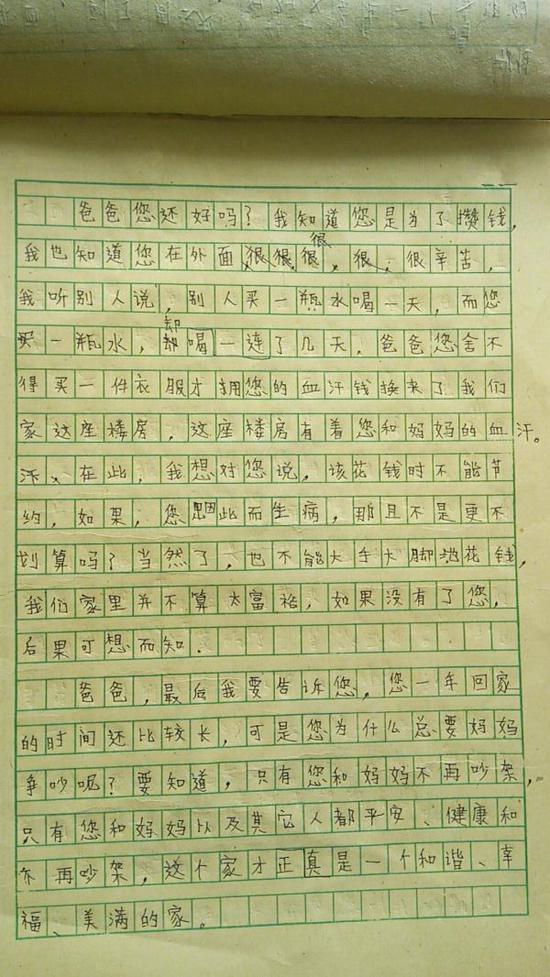 爸爸您还好吗？我知道您是为了攒钱，
我也知道您在外面很很很，很，很辛苦，
我听别人说，别人买一瓶水喝一天，而您
买一瓶水，却喝一连了几天，爸爸您舍不
得买一件衣服才拥您的血汗钱换来了我们
家这座楼房，这座楼房有着您和妈妈的血汗。
汗、在此，我想对您说，该花钱时不能节
约，如果，您因此而生病，那且不是更不
划算吗？当然了，也不能大手大脚地花钱，
我们家里并不算太富裕，如果没有了您，
后果可想而知．
爸爸，最后我要告诉您，您一年回家
的时间还比较长，可是您为什么总要妈妈
争吵呢？要知道，只有您和妈妈不再吵架，
只有您和妈妈以及其它人都平安、健康和
不再吵架，这个家才正真是一个和谐、幸
福、美满的家。